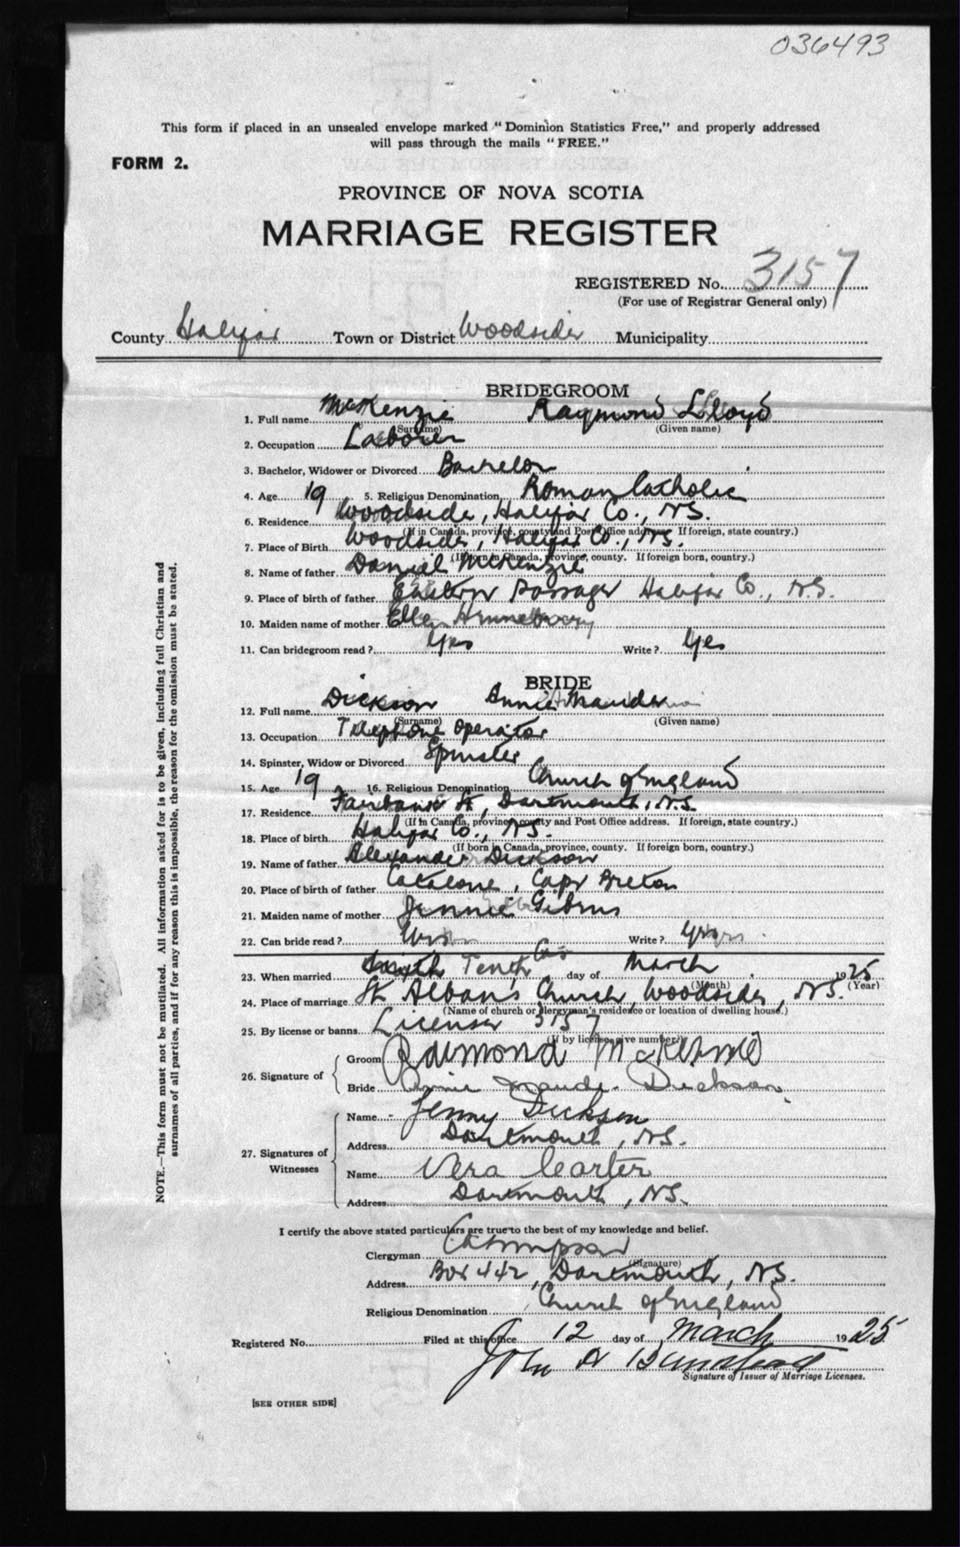 036493
This form if placed in an unsealed envelope marked "Dominion Statistics Free," and properly addressed
will pass through the mails "FREE."
FORM 2.
PROVINCE OF NOVA SCOTIA
MARRIAGE REGISTER
REGISTERED No. 3157
(For use of Registrar General only)
County Halifax Town or District Woodside Municipality
BRIDEGROOM
1. Full name McKenzie Raymond Lloyd
(Surname) (Given name)
2. Occupation Laborer
3. Bachelor, Widower or Divorced Bachelor
4. Age 19 5. Religious Denomination Roman Catholic
6. Residence Woodside, Halifax Co., N.S.
(If in Canada, province, county and Post Office address. If foreign, state country.)
7. Place of Birth Woodside, Halifax Co., N.S.
(If born in Canada, province, county. If foreign born, country.)
8. Name of father Daniel McKenzie
9. Place of birth of father Eastern Passage Halifax Co., N.S.
10. Maiden name of mother Ellen
11. Can bridegroom read? Yes Write? Yes
BRIDE
12. Full name Dickson Annie Maude
(Surname) (Given name)
13. Occupation Telephone Operator
14. Spinster, Widow or Divorced Spinster
15. Age 19 16. Religious Denomination Church of England
17. Residence Fairbanks St, Dartmouth, N.S.
(If in Canada, province, county and Post Office address. If foreign, state country.)
18. Place of birth Halifax Co., N.S.
(If born in Canada, province, county. If foreign born, country.)
19. Name of father Alexander Dickson
20. Place of birth of father Catalone, Cape Breton
21. Maiden name of mother Jennie Gibbons
22. Can bride read? Yes Write? Yes
23. When married Tenth day of March 1925
(Month) (Year)
24. Place of marriage St Alban's Church, Woodside, N.S.
(Name of church or clergyman's residence or location of dwelling house.)
25. By license or banns License 3157
(If by license, give number)
26. Signature of
Groom Raimond McKenzie
Bride Annie Maude Dickson
27. Signatures of Witnesses
Name Jenny Dickson
Address Dartmouth, N.S.
Name Vera Carter
Address Dartmouth, N.S.
I certify the above stated particulars are true to the best of my knowledge and belief.
Clergyman
(Signature)
Address Box 442, Dartmouth, N.S.
Religious Denomination Church of England
Registered No. Filed at this office 12 day of March 1925
John A
Signature of Issuer of Marriage Licenses.
[SEE OTHER SIDE]
NOTE.—This form must not be mutilated. All information asked for is to be given, including full Christian and
surnames of all parties, and if for any reason this is impossible, the reason for the omission must be stated.